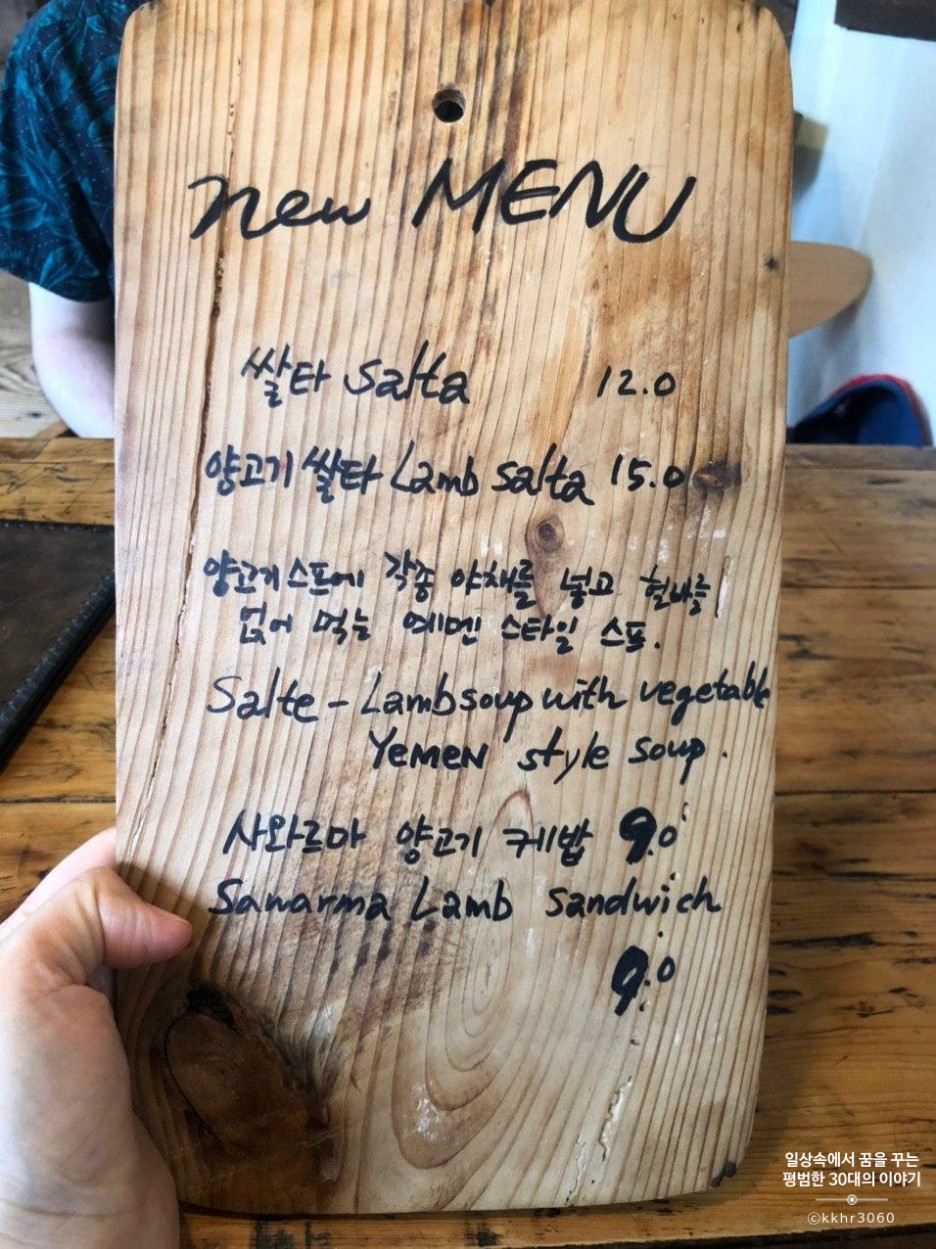 new MENU
쌀타 Salta 12.0
양고기 쌀타 Lamb Salta 15.0
양고기 스프에 각종 야채를 넣고 헐바를
얹어 먹는 예멘 스타일 스프.
Salte - Lamb soup with vegetable
YEMEN style soup.
사와르마 양고기 케밥 9.0
Sawarma Lamb Sandwich
9.0
일상속에서 꿈을 꾸는
평범한 30대의 이야기
©kkhr3060